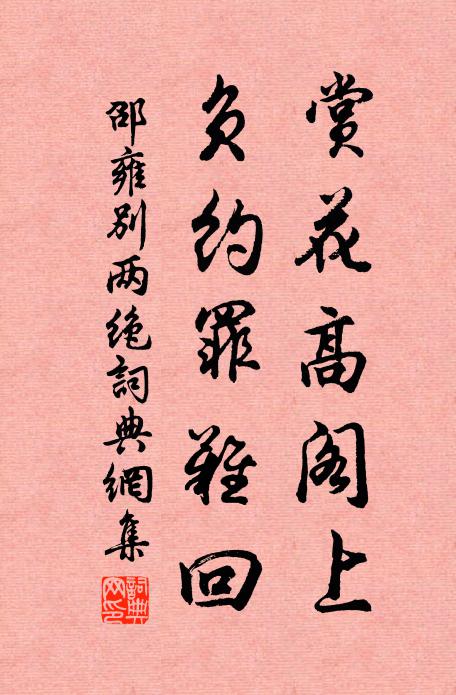 赏花高阁上
负约罪难回
邵雍别两绝词典網集
詞典網印